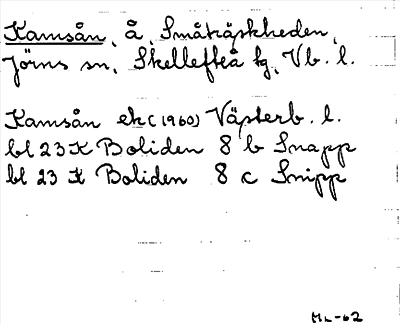 Kamsån, å, Småträskheden,
Jörns sn, Skellefteå tg, Vb. l.
Kamsån ek (1960) Västerb. l.
bl 23 K Boliden 8 b Snapp
bl 23 K Boliden 8 c Snipp
ML-62